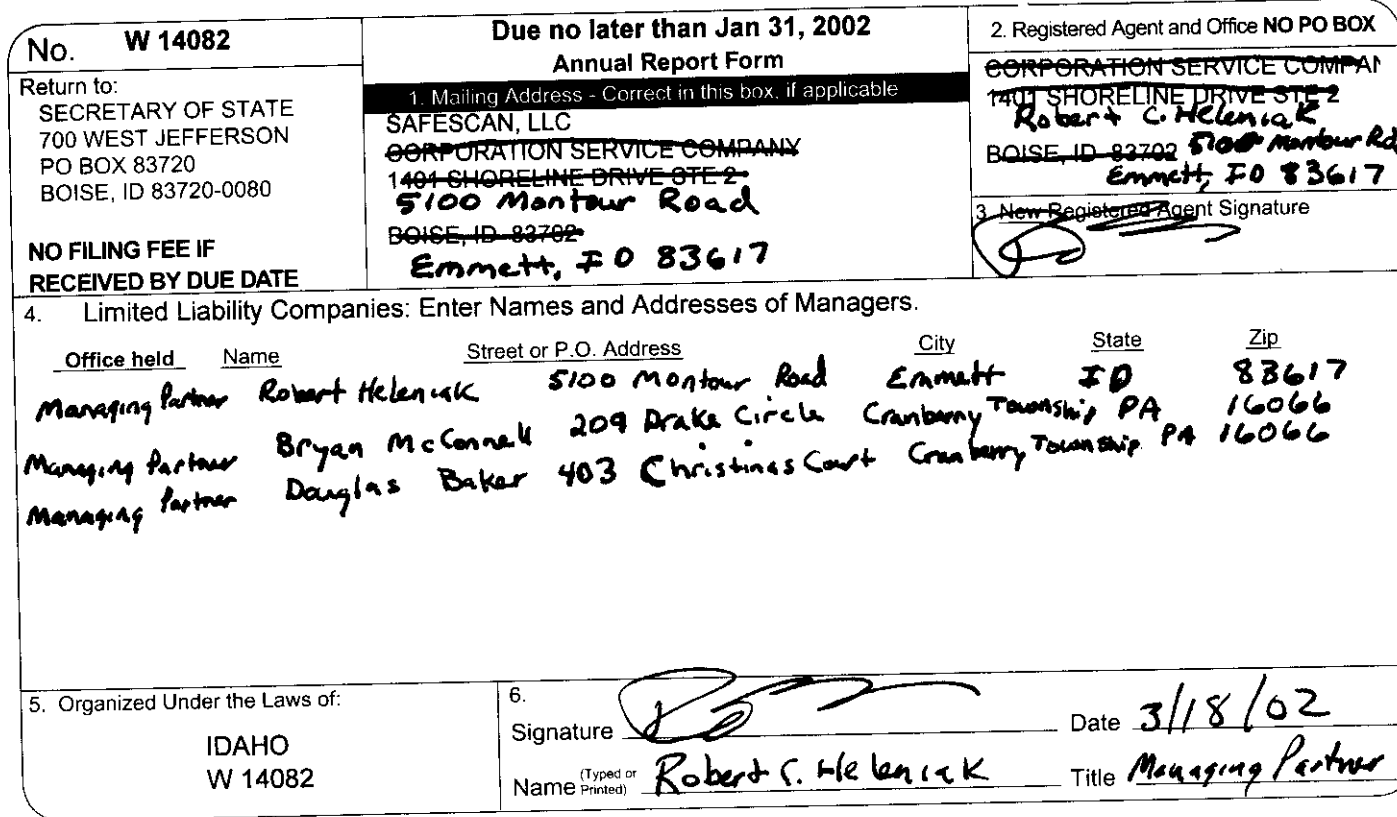 No. W 14082
Return to:
SECRETARY OF STATE
700 WEST JEFFERSON
PO BOX 83720
BOISE, ID 83720-0080
NO FILING FEE IF
RECEIVED BY DUE DATE
Due no later than Jan 31, 2002
Annual Report Form
1. Mailing Address - Correct in this box, if applicable
SAFESCAN, LLC
CORPORATION SERVICE COMPANY
1401 SHORELINE DRIVE STE 2
5100 Montour Road
BOISE, ID 83702
Emmett, ID 83617
2. Registered Agent and Office NO PO BOX
CORPORATION SERVICE COMPAN
1401 SHORELINE DRIVE STE 2
Robert C. Heleniak
BOISE, ID 83702 5100 Montour Rd
Emmett, ID 83617
3. New Registered Agent Signature
4. Limited Liability Companies: Enter Names and Addresses of Managers.
Office held Name Street or P.O. Address City State Zip
Managing Partner Robert Heleniak 5100 Montour Road Emmett ID 83617
Managing Partner Bryan McConnell 209 Drake Circle Cranberry Township PA 16066
Managing Partner Douglas Baker 403 Christinas Court Cranberry Township PA 16066
5. Organized Under the Laws of:
IDAHO
W 14082
6.
Signature Date 3/18/02
Name (Typed or Printed) Robert C. Heleniak Title Managing Partner